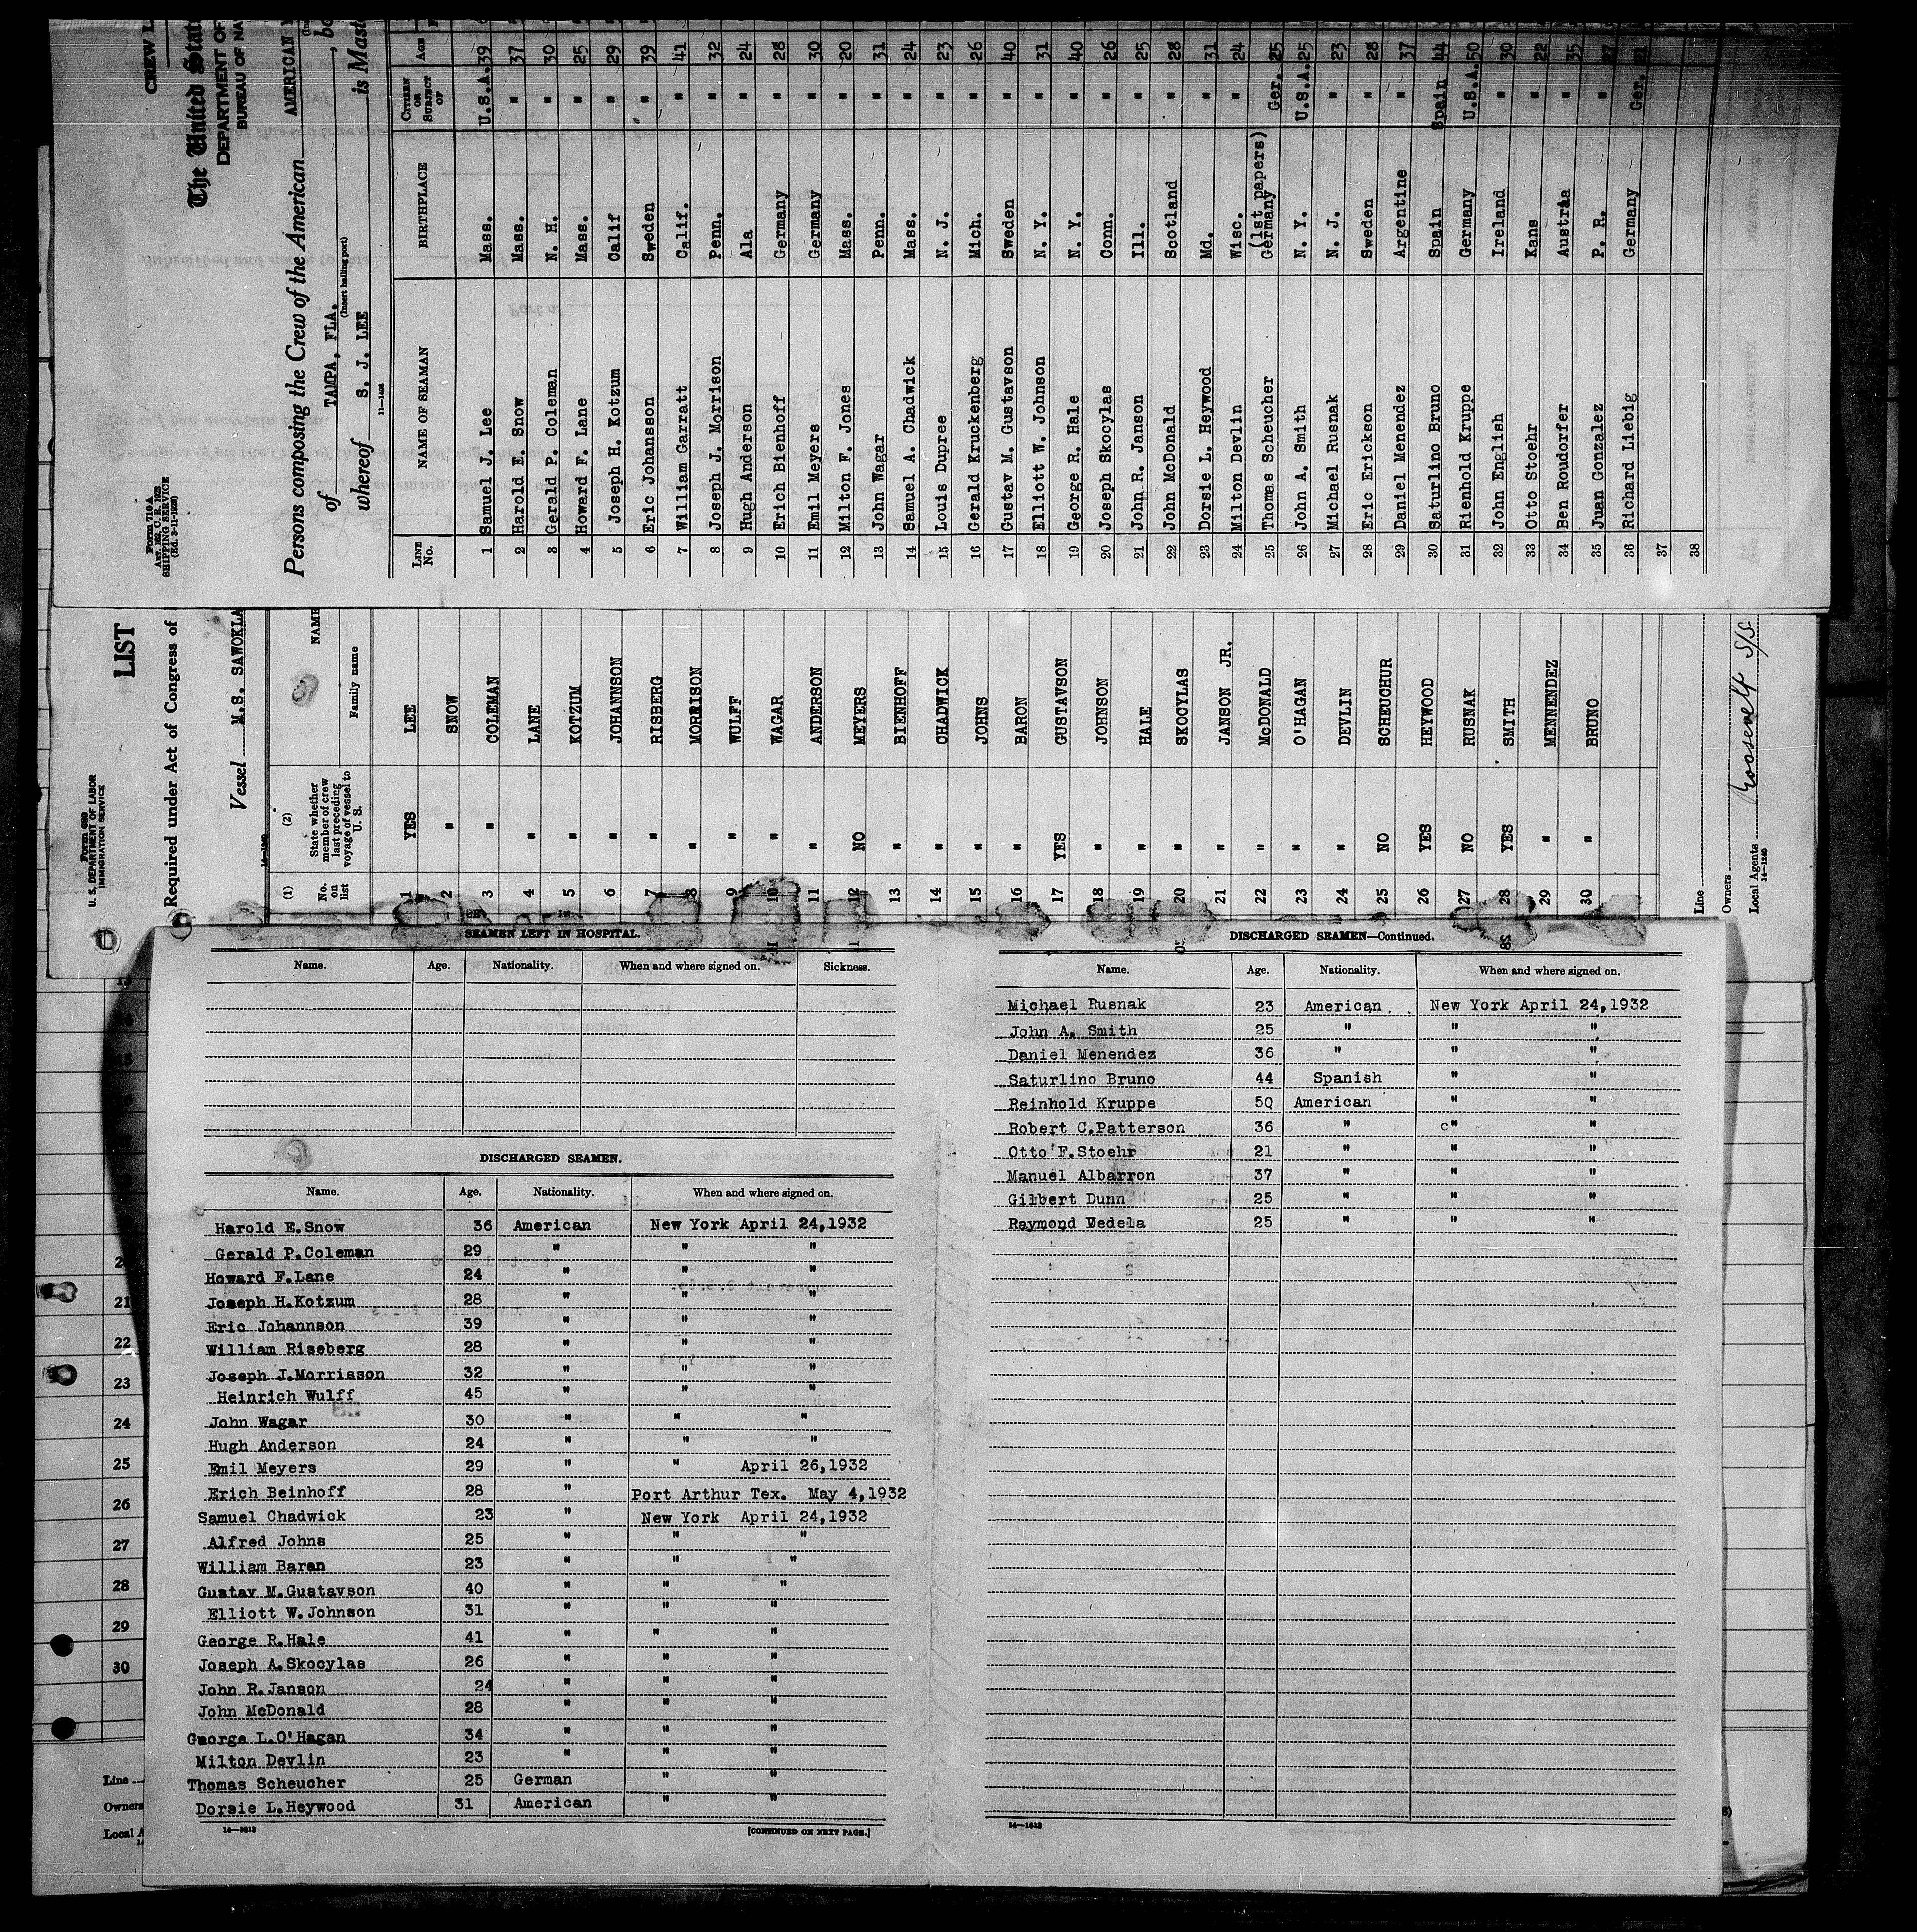 CREW L
The United Stat
DEPARTMENT OF
BUREAU OF NA
Form 710 A
SHIPPING SERVICE
Persons composing the Crew of the American AMERICAN
of TAMPA, FLA. , bo
(Insert hailing port)
whereof S. J. LEE is Mast
11—1403
LINE No. NAME OF SEAMAN BIRTHPLACE CITIZEN OR SUBJECT OF AGE
1 Samuel J. Lee Mass. U.S.A. 39
2 Harold E. Snow Mass. " 37
3 Gerald P. Coleman N. H. " 30
4 Howard F. Lane Mass. " 25
5 Joseph H. Kotzum Calif " 29
6 Eric Johansson Sweden " 39
7 William Garratt Calif. " 41
8 Joseph J. Morrison Penn. " 32
9 Hugh Anderson Ala " 24
10 Erich Bienhoff Germany " 28
11 Emil Meyers Germany " 30
12 Milton F. Jones Mass. " 20
13 John Wagar Penn. " 31
14 Samuel A. Chadwick Mass. " 24
15 Louis Dupree N. J. " 23
16 Gerald Kruckenberg Mich. " 26
17 Gustav M. Gustavson Sweden " 40
18 Elliott W. Johnson N. Y. " 31
19 George R. Hale N. Y. " 40
20 Joseph Skocylas Conn. " 26
21 John R. Janson Ill. " 25
22 John McDonald Scotland " 28
23 Dorsie L. Heywood Md. " 31
24 Milton Devlin Wisc. " 24
(1st papers)
25 Thomas Scheucher Germany Ger. 25
26 John A. Smith N. Y. U.S.A. 25
27 Michael Rusnak N. J. " 23
28 Eric Erickson Sweden " 28
29 Daniel Menendez Argentine " 37
30 Saturlino Bruno Spain Spain 44
31 Rienhold Kruppe Germany U.S.A. 50
32 John English Ireland " 30
33 Otto Stoehr Kans " 22
34 Ben Roudorfer Austria " 35
35 Juan Gonzalez P. R. " 27
36 Richard Liebig Germany Ger. 21
37
38
LIST
Form 689
U. S. DEPARTMENT OF LABOR
IMMIGRATION SERVICE
Required under Act of Congress of
Vessel M.S. SAWOKLA
(1) (2) NAME
No. on list State whether member of crew last preceding voyage of vessel to U. S. Family name
1 YES LEE
2 " SNOW
3 " COLEMAN
4 " LANE
5 " KOTZUM
6 " JOHANNSON
7 " RISBERG
8 " MORRISON
9 " WULFF
10 " WAGAR
11 " ANDERSON
12 NO MEYERS
13 " BIENHOFF
14 " CHADWICK
15 " JOHNS
16 " BARON
17 YES GUSTAVSON
18 " JOHNSON
19 " HALE
20 " SKOCYLAS
21 " JANSON JR.
22 " McDONALD
23 " O'HAGAN
24 " DEVLIN
25 NO SCHEUCHUR
26 YES HEYWOOD
27 NO RUSNAK
28 YES SMITH
29 " MENNENDEZ
30 " BRUNO
Line
Owners
Local Agents Roosevelt S/S
14—1240
SEAMEN LEFT IN HOSPITAL.
Name. Age. Nationality. When and where signed on. Sickness.
DISCHARGED SEAMEN.
Name. Age. Nationality. When and where signed on.
Harold E.Snow 36 American New York April 24,1932
Gerald P.Coleman 29 " " "
Howard F.Lane 24 " " "
Joseph H.Kotzum 28 " " "
Eric Johannson 39 " " "
William Riseberg 28 " " "
Joseph J.Morrisson 32 " " "
Heinrich Wulff 45 " " "
John Wagar 30 " " "
Hugh Anderson 24 " " "
Emil Meyers 29 " " April 26,1932
Erich Beinhoff 28 " Port Arthur Tex. May 4,1932
Samuel Chadwick 23 " New York April 24,1932
Alfred Johns 25 " " "
William Baran 23 " " "
Gustav M.Gustavson 40 " " "
Elliott W.Johnson 31 " " "
George R.Hale 41 " " "
Joseph A.Skocylas 26 " " "
John R.Janson 24 " " "
John McDonald 28 " " "
George L.O'Hagan 34 " " "
Milton Devlin 23 " " "
Thomas Scheucher 25 German " "
Dorsie L.Heywood 31 American " "
14—1613 [CONTINUED ON NEXT PAGE.]
DISCHARGED SEAMEN—Continued.
Name. Age. Nationality. When and where signed on.
Michael Rusnak 23 American New York April 24,1932
John A. Smith 25 " " "
Daniel Menendez 36 " " "
Saturlino Bruno 44 Spanish " "
Reinhold Kruppe 50 American " "
Robert C.Patterson 36 " c" "
Otto F.Stoehr 21 " " "
Manuel Albarron 37 " " "
Gilbert Dunn 25 " " "
Raymond Vedela 25 " " "
14—1613
21
22
23
24
25
26
27
28
29
30
Line
Owners
Local A